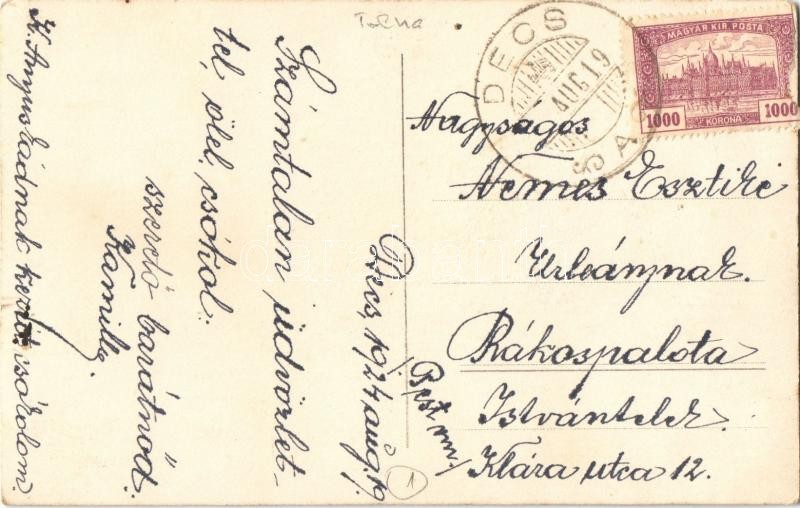 Tolna
DECS
AUG 19
SA
MAGYAR KIR. POSTA
1000 1000
KORONA
Nagyságos
Nemes Esztike
Urleánynak.
Rákospalota
Istvántelek.
/Pest m./
Klára utca 12.
Decs, 1924 aug. 19.
Számtalan üdvözlet-
tel, ölel, csókol:
szerető barátnőd:
Kamilla
K. Anyuskádnak kezeit csókolom
1